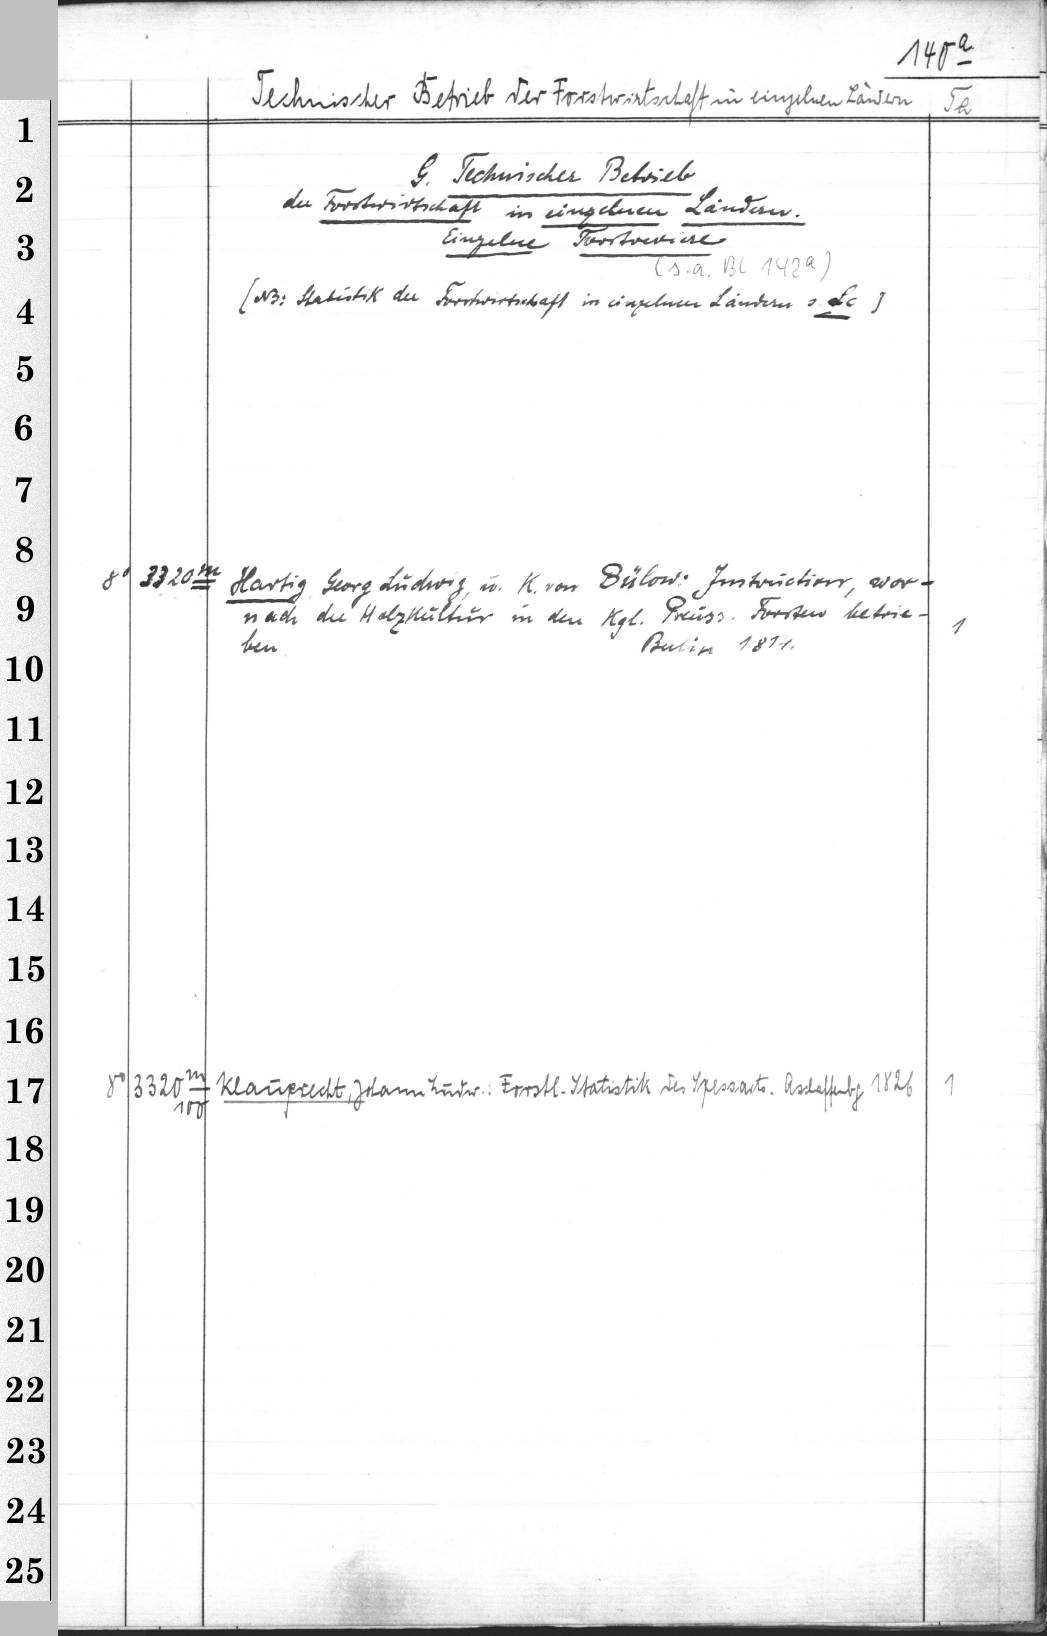 140ª
Technischer Betrieb der Forstwirtschaft in einzelnen Ländern
G. Technischer Betrieb
der Forstwirtschaft in einzelnen Ländern.
Einzelne Forstreviere
(s. a. Bl 142ª)
[NB: Statistik der Forstwirtschaft in einzelnen Ländern s. Lc ]
8° 3320 m Hartig, Georg Ludwig, u. K. von Bülow: Instruction, wor-
nach die Holzkultur in den Kgl. Preuss. Forsten betrie-
ben Berlin 1814. 1
8° 3320 m Klauprecht, Johann Ludw.: Forstl. Statistik des Spessarts. Aschaffenbg 1826 1
100
1
2
3
4
5
6
7
8
9
10
11
12
13
14
15
16
17
18
19
20
21
22
23
24
25